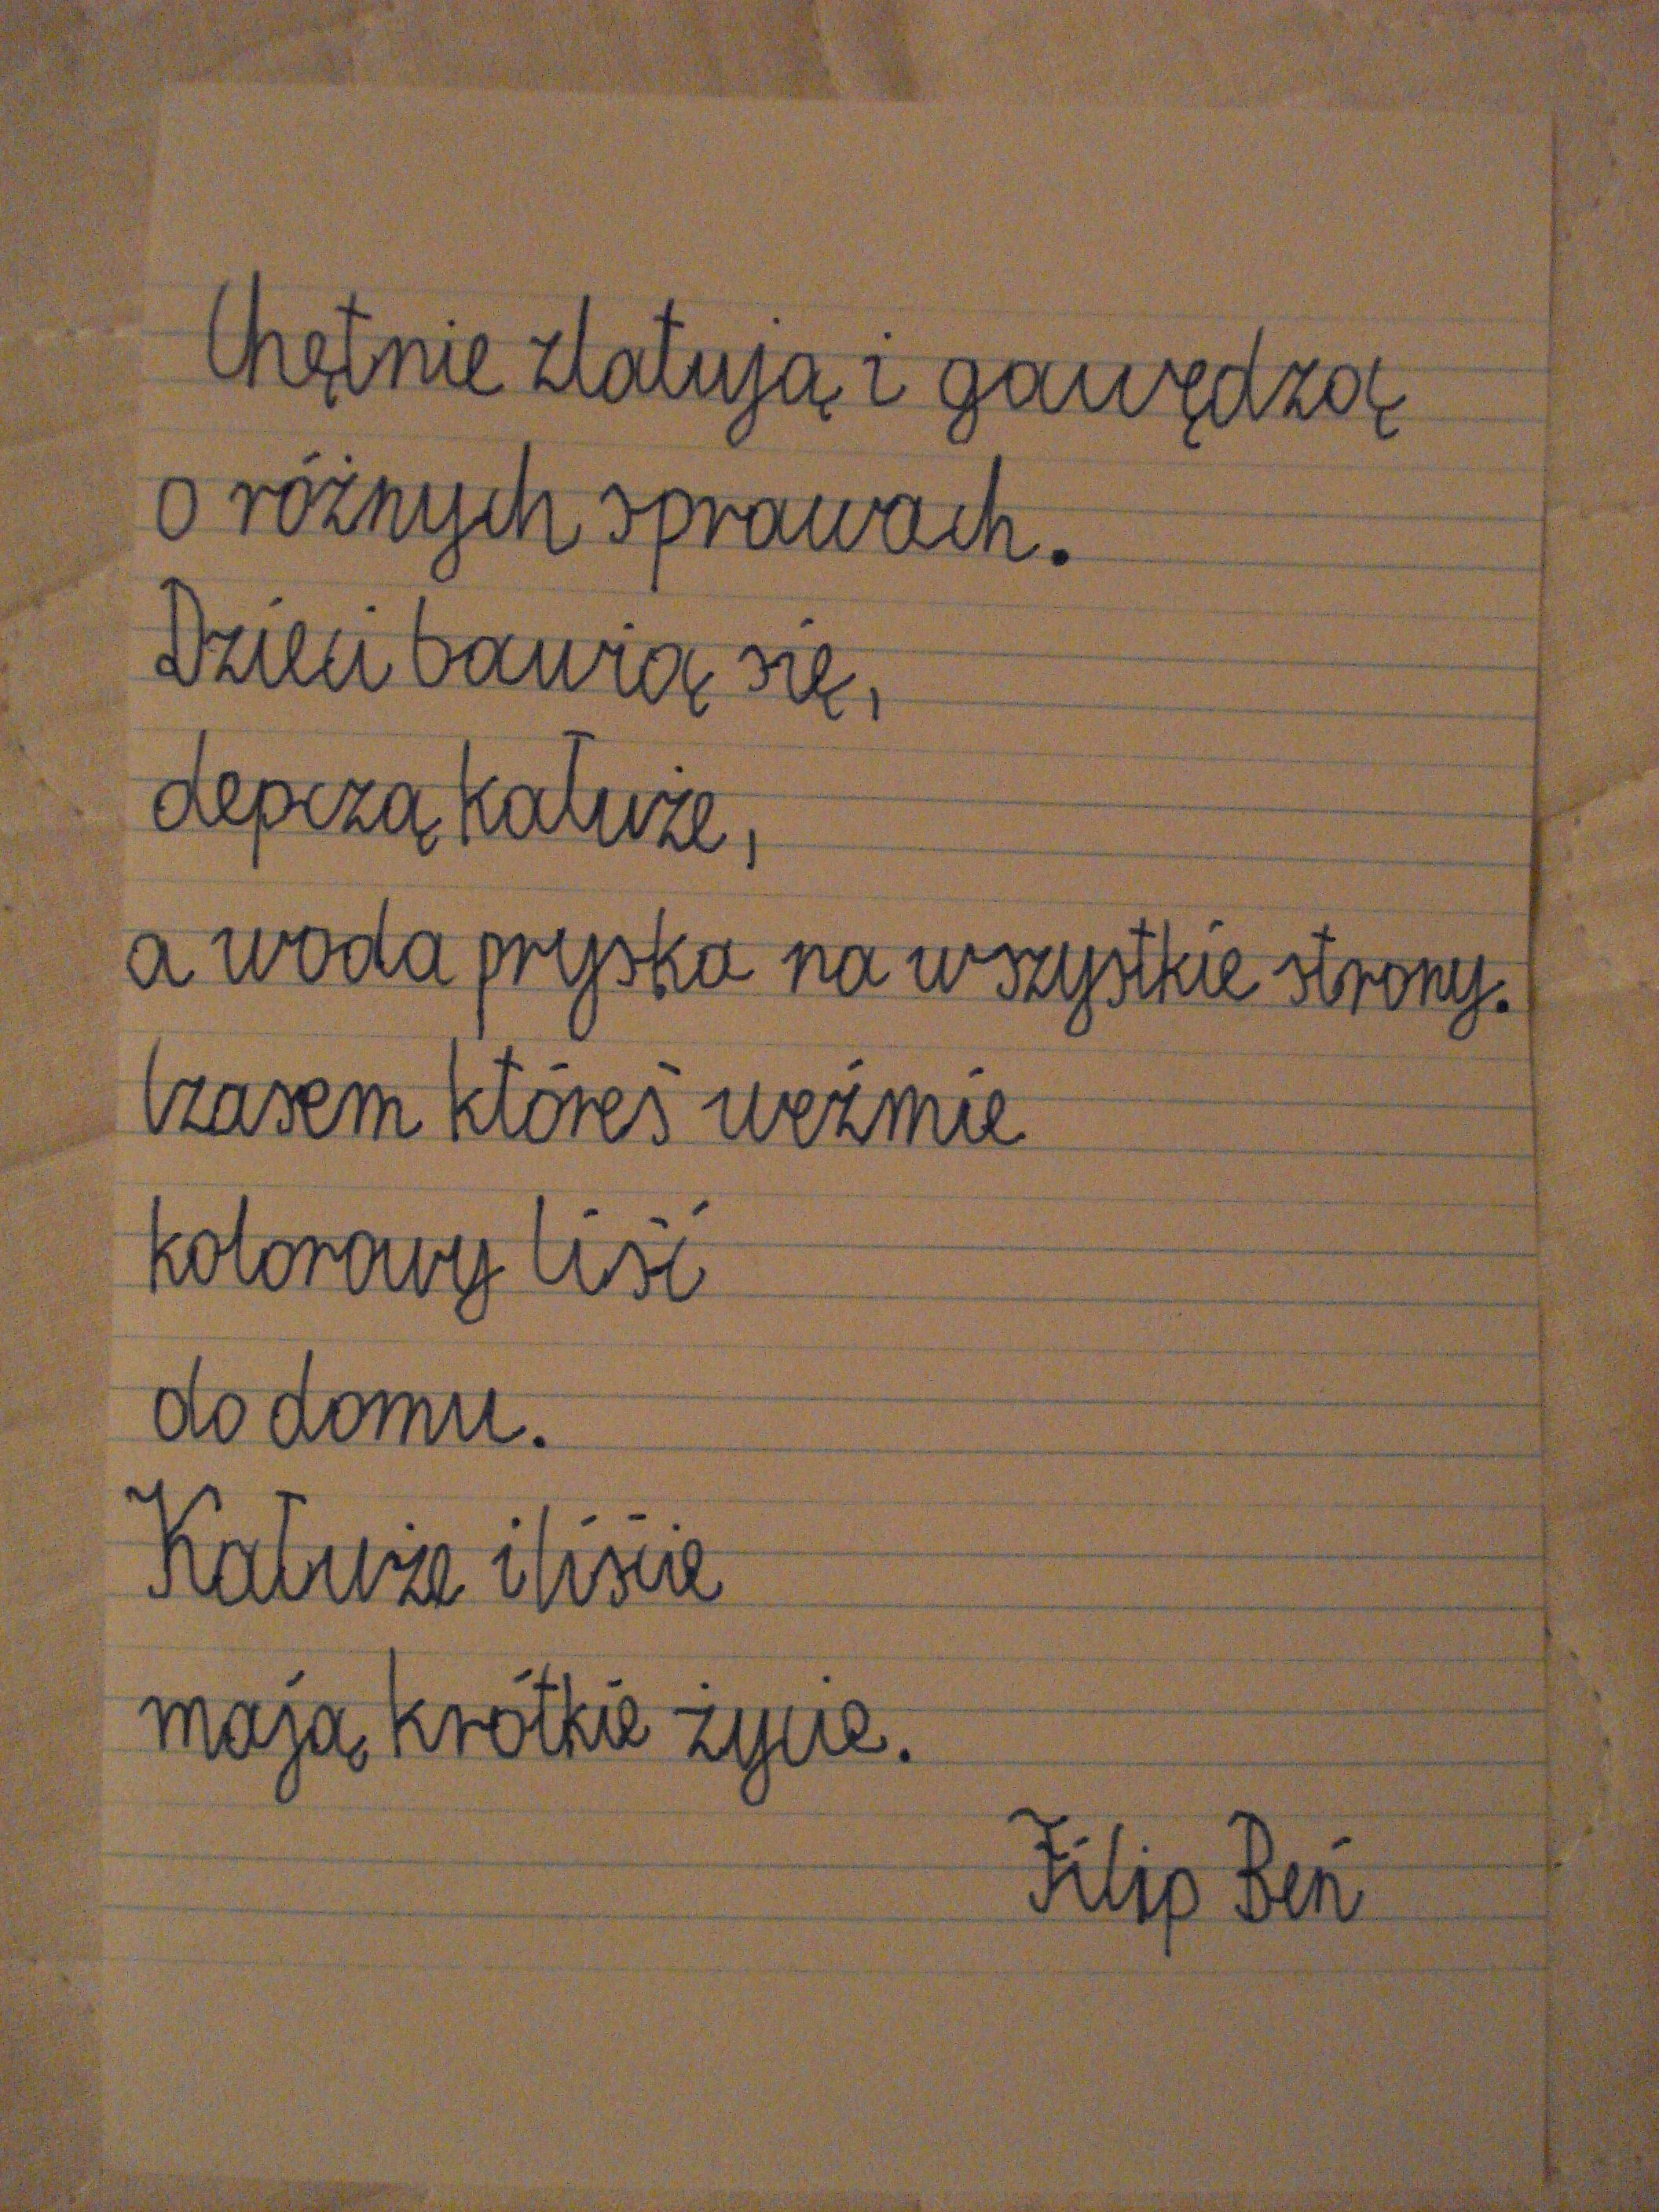 Chętnie zlatują i gawędzą
o różnych sprawach.
Dzieci bawią się,
depczą kałuże,
a woda pryska na wszystkie strony.
Czasem któreś weźmie
kolorowy liść
do domu.
Kałuże i liście
mają krótkie życie.
Filip Beń